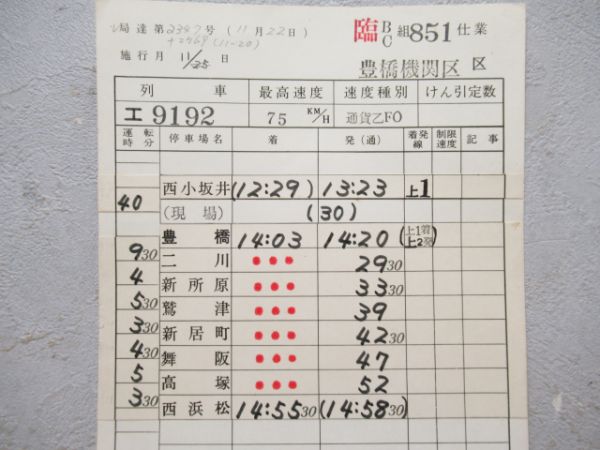 局達第2347号 (11月22日)
+2469 (11-20)
施行月 11/25 日
臨 B C 組 851 仕業
豊橋機関区 区
列車 最高速度 速度種別 けん引定数
工9192 75 KM/H 通貨乙FO
運転時分 停車場名 着 発(通) 着発線 制限速度 記事
西小坂井 (12:29) 13:23 上1
40 (現場) (30)
豊橋 14:03 14:20 (上1着 上2発)
930 二川 ••• 2930
4 新所原 ••• 3330
530 鷲津 ••• 39
330 新居町 ••• 4230
430 舞阪 ••• 47
5 高塚 ••• 52
330 西浜松 14:5530 (14:5830)